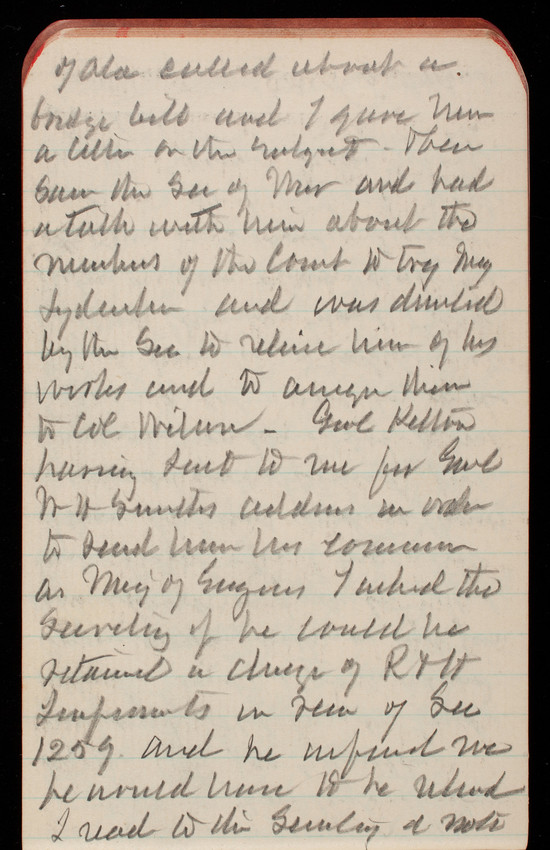 of Ala called about a
bridge bill and I gave him
a letter on the subject. Then
Saw the Sec of War and had
a talk with him about the
members of the Court to try Maj
Lydecker and was directed
by the Sec to relieve him of his
works and to assign them
to Col Wilson - Genl Kelton
having sent to me for Genl
W F Smiths address in order
to send him his commission
as Maj of Engrs I asked the
Secretary if he could be
retained in charge of R & H
Improvements in view of Sec
1259. and he informed me
he would have to be retired
I read to the Secretary a note